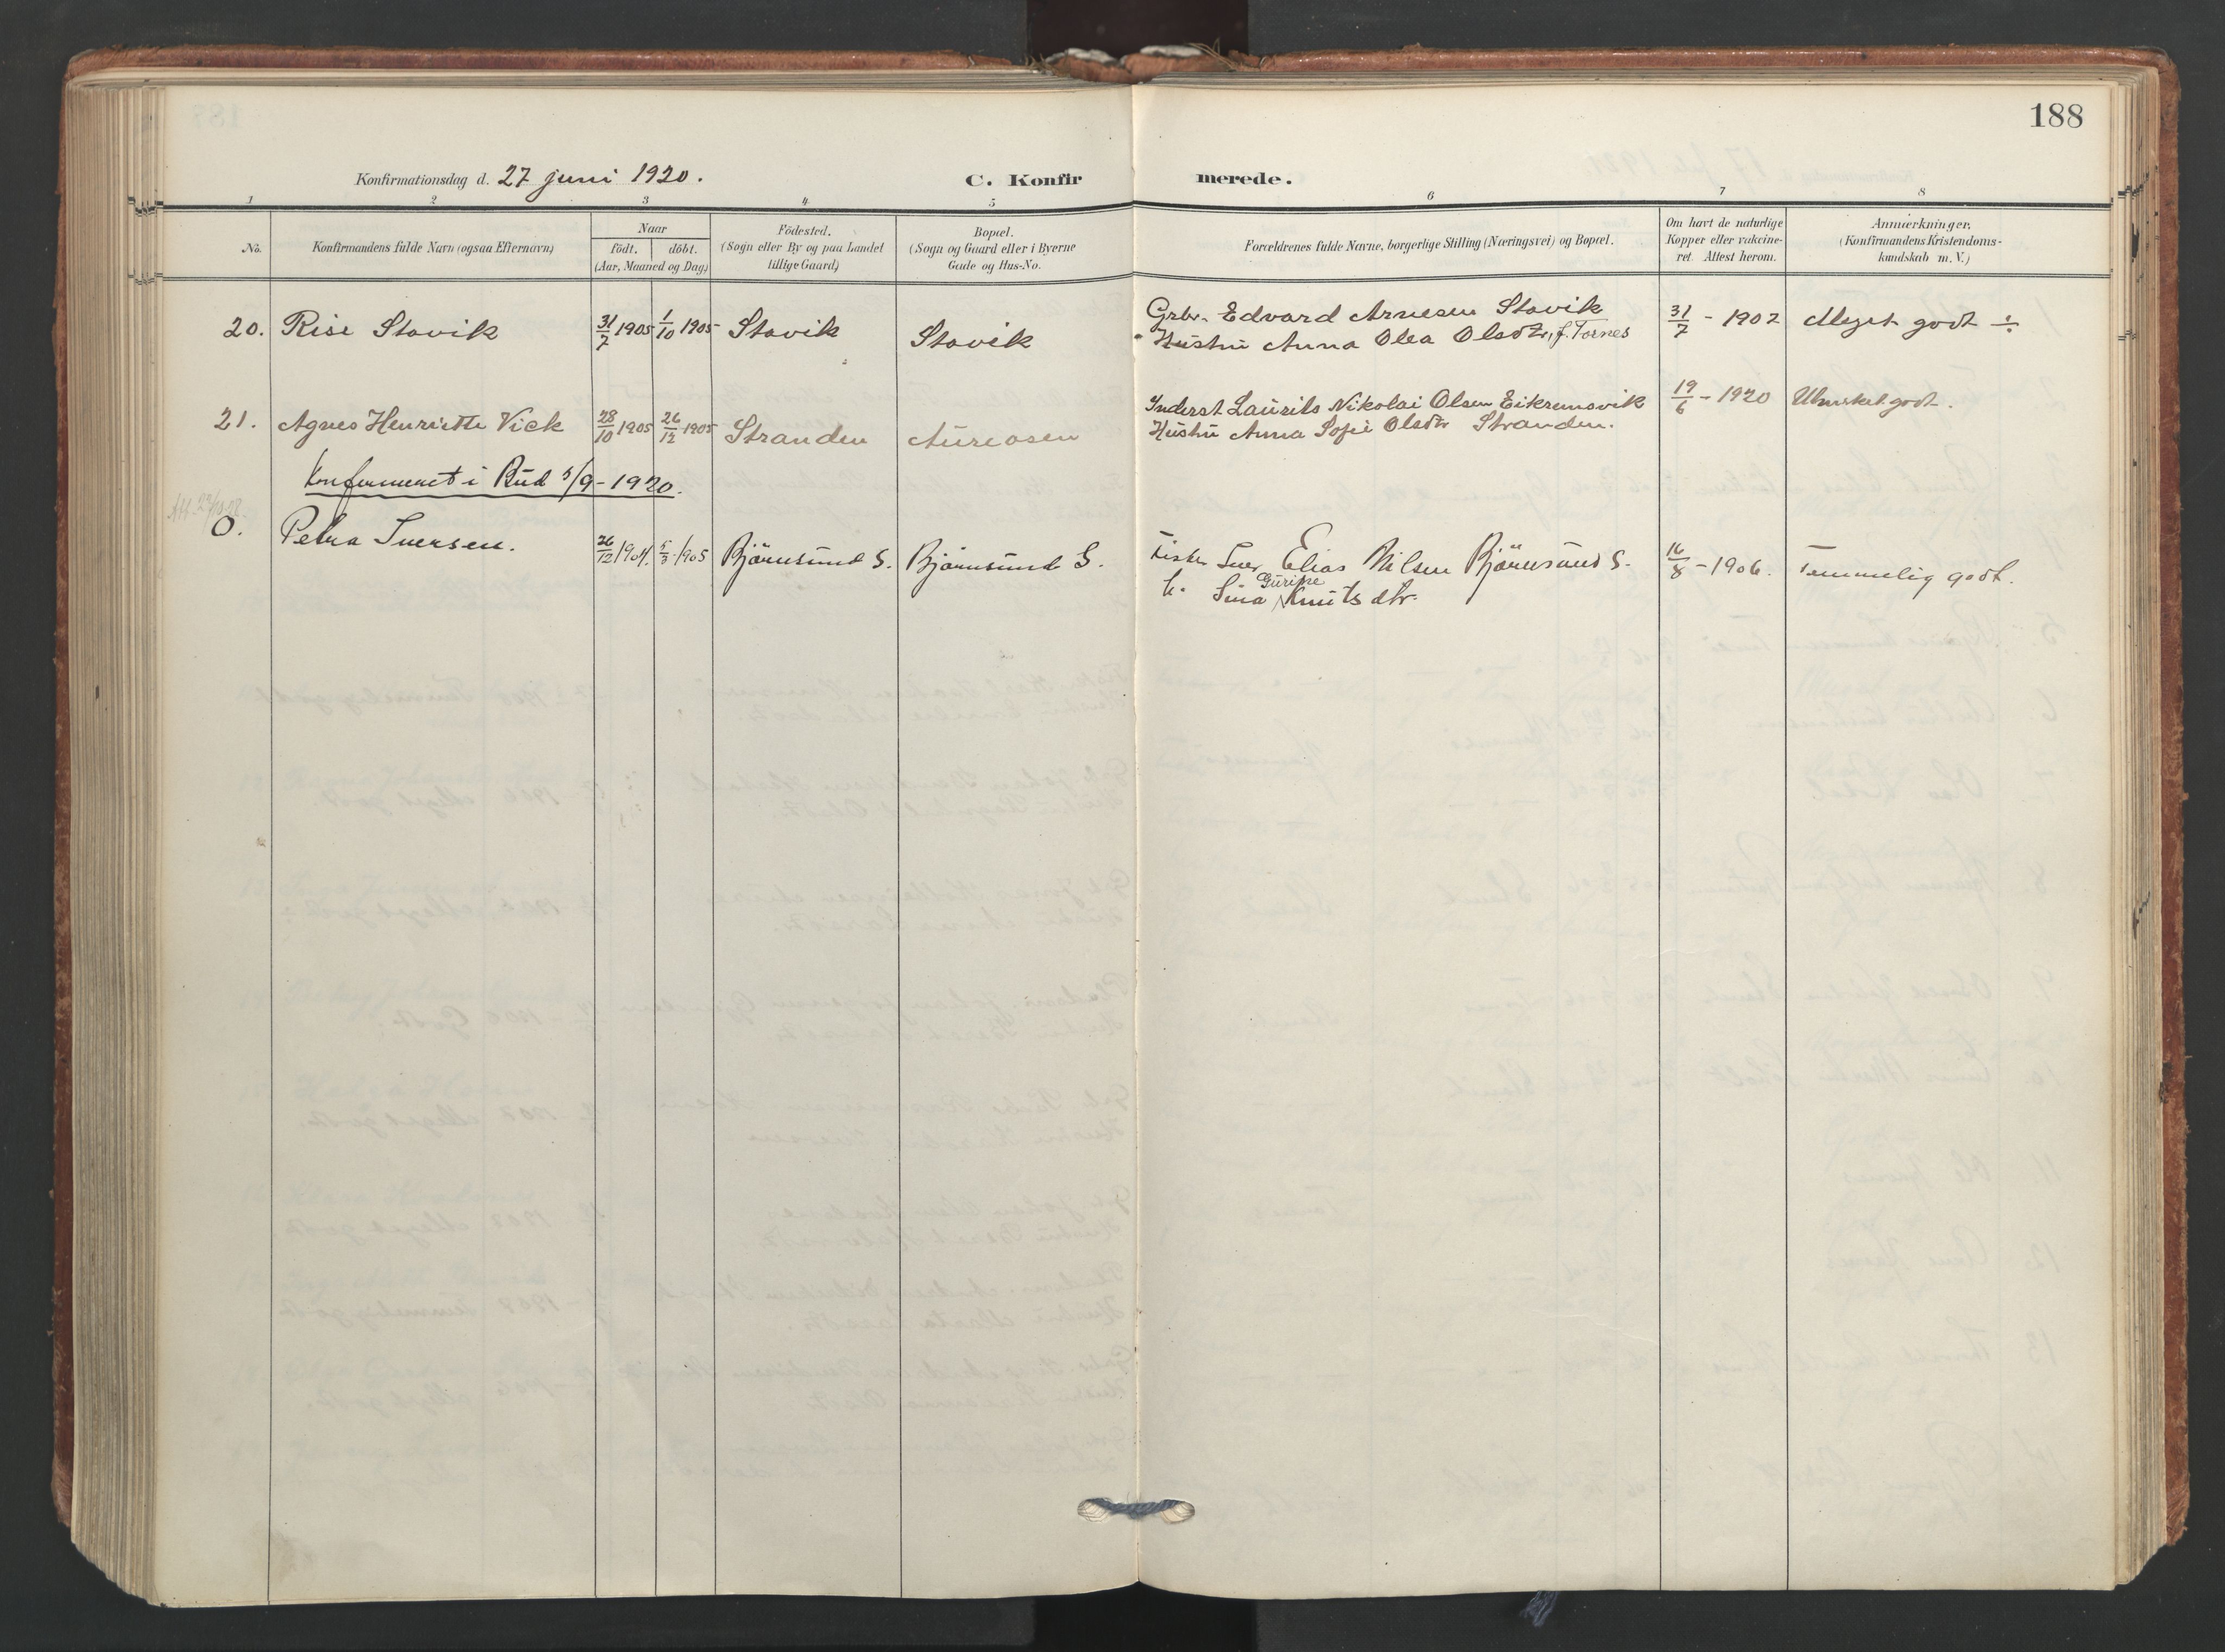 188
Konfirmationsdag d. 27 juni 1920.
C. Konfirmerede.
1 2 3 4 5 6 7 8
No.
Konfirmandens fulde Navn (ogsaa Efternavn)
Naar
födt. döbt.
(Aar, Maaned og Dag)
Födested.
(Sogn eller By og paa Landet
tillige Gaard)
Bopæl.
(Sogn og Gaard eller i Byerne
Gade og Hus-No.
Forældrenes fulde Navne, borgerlige Stilling (Næringsvei) og Bopæl.
Om havt de naturlige
Kopper eller vakcine-
ret. Attest herom.
Anmærkninger.
(Konfirmandens Kristendoms-
kundskab m. V.)
20. Rise Stavik 31/7 1905 1/10 1905 Stavik Stavik
Grbr. Edvard Arnesen Stavik
Hustru Anna Olea Olsdtr, f. Tornes
31/7 - 1902 Meget godt ÷
21. Agnes Henriette Vick 28/10 1905 26/12 1905 Stranden Aureosen
Inderst Laurits Nikolai Olsen Eikremsvik
Hustru Anna Sofie Olsdtr Stranden.
19/6 - 1920 Udmerket godt.
Konfirmeret i Bud 5/9 - 1920.
0. Petra Iversen. 26/12 1904. 5/3 1905 Bjørnsund S. Bjørnsund S.
Fisker Iver Elias Nilsen Bjørnsund S.
h. Sina Gurine Knutsdtr.
16/8 - 1906. Temmelig godt.